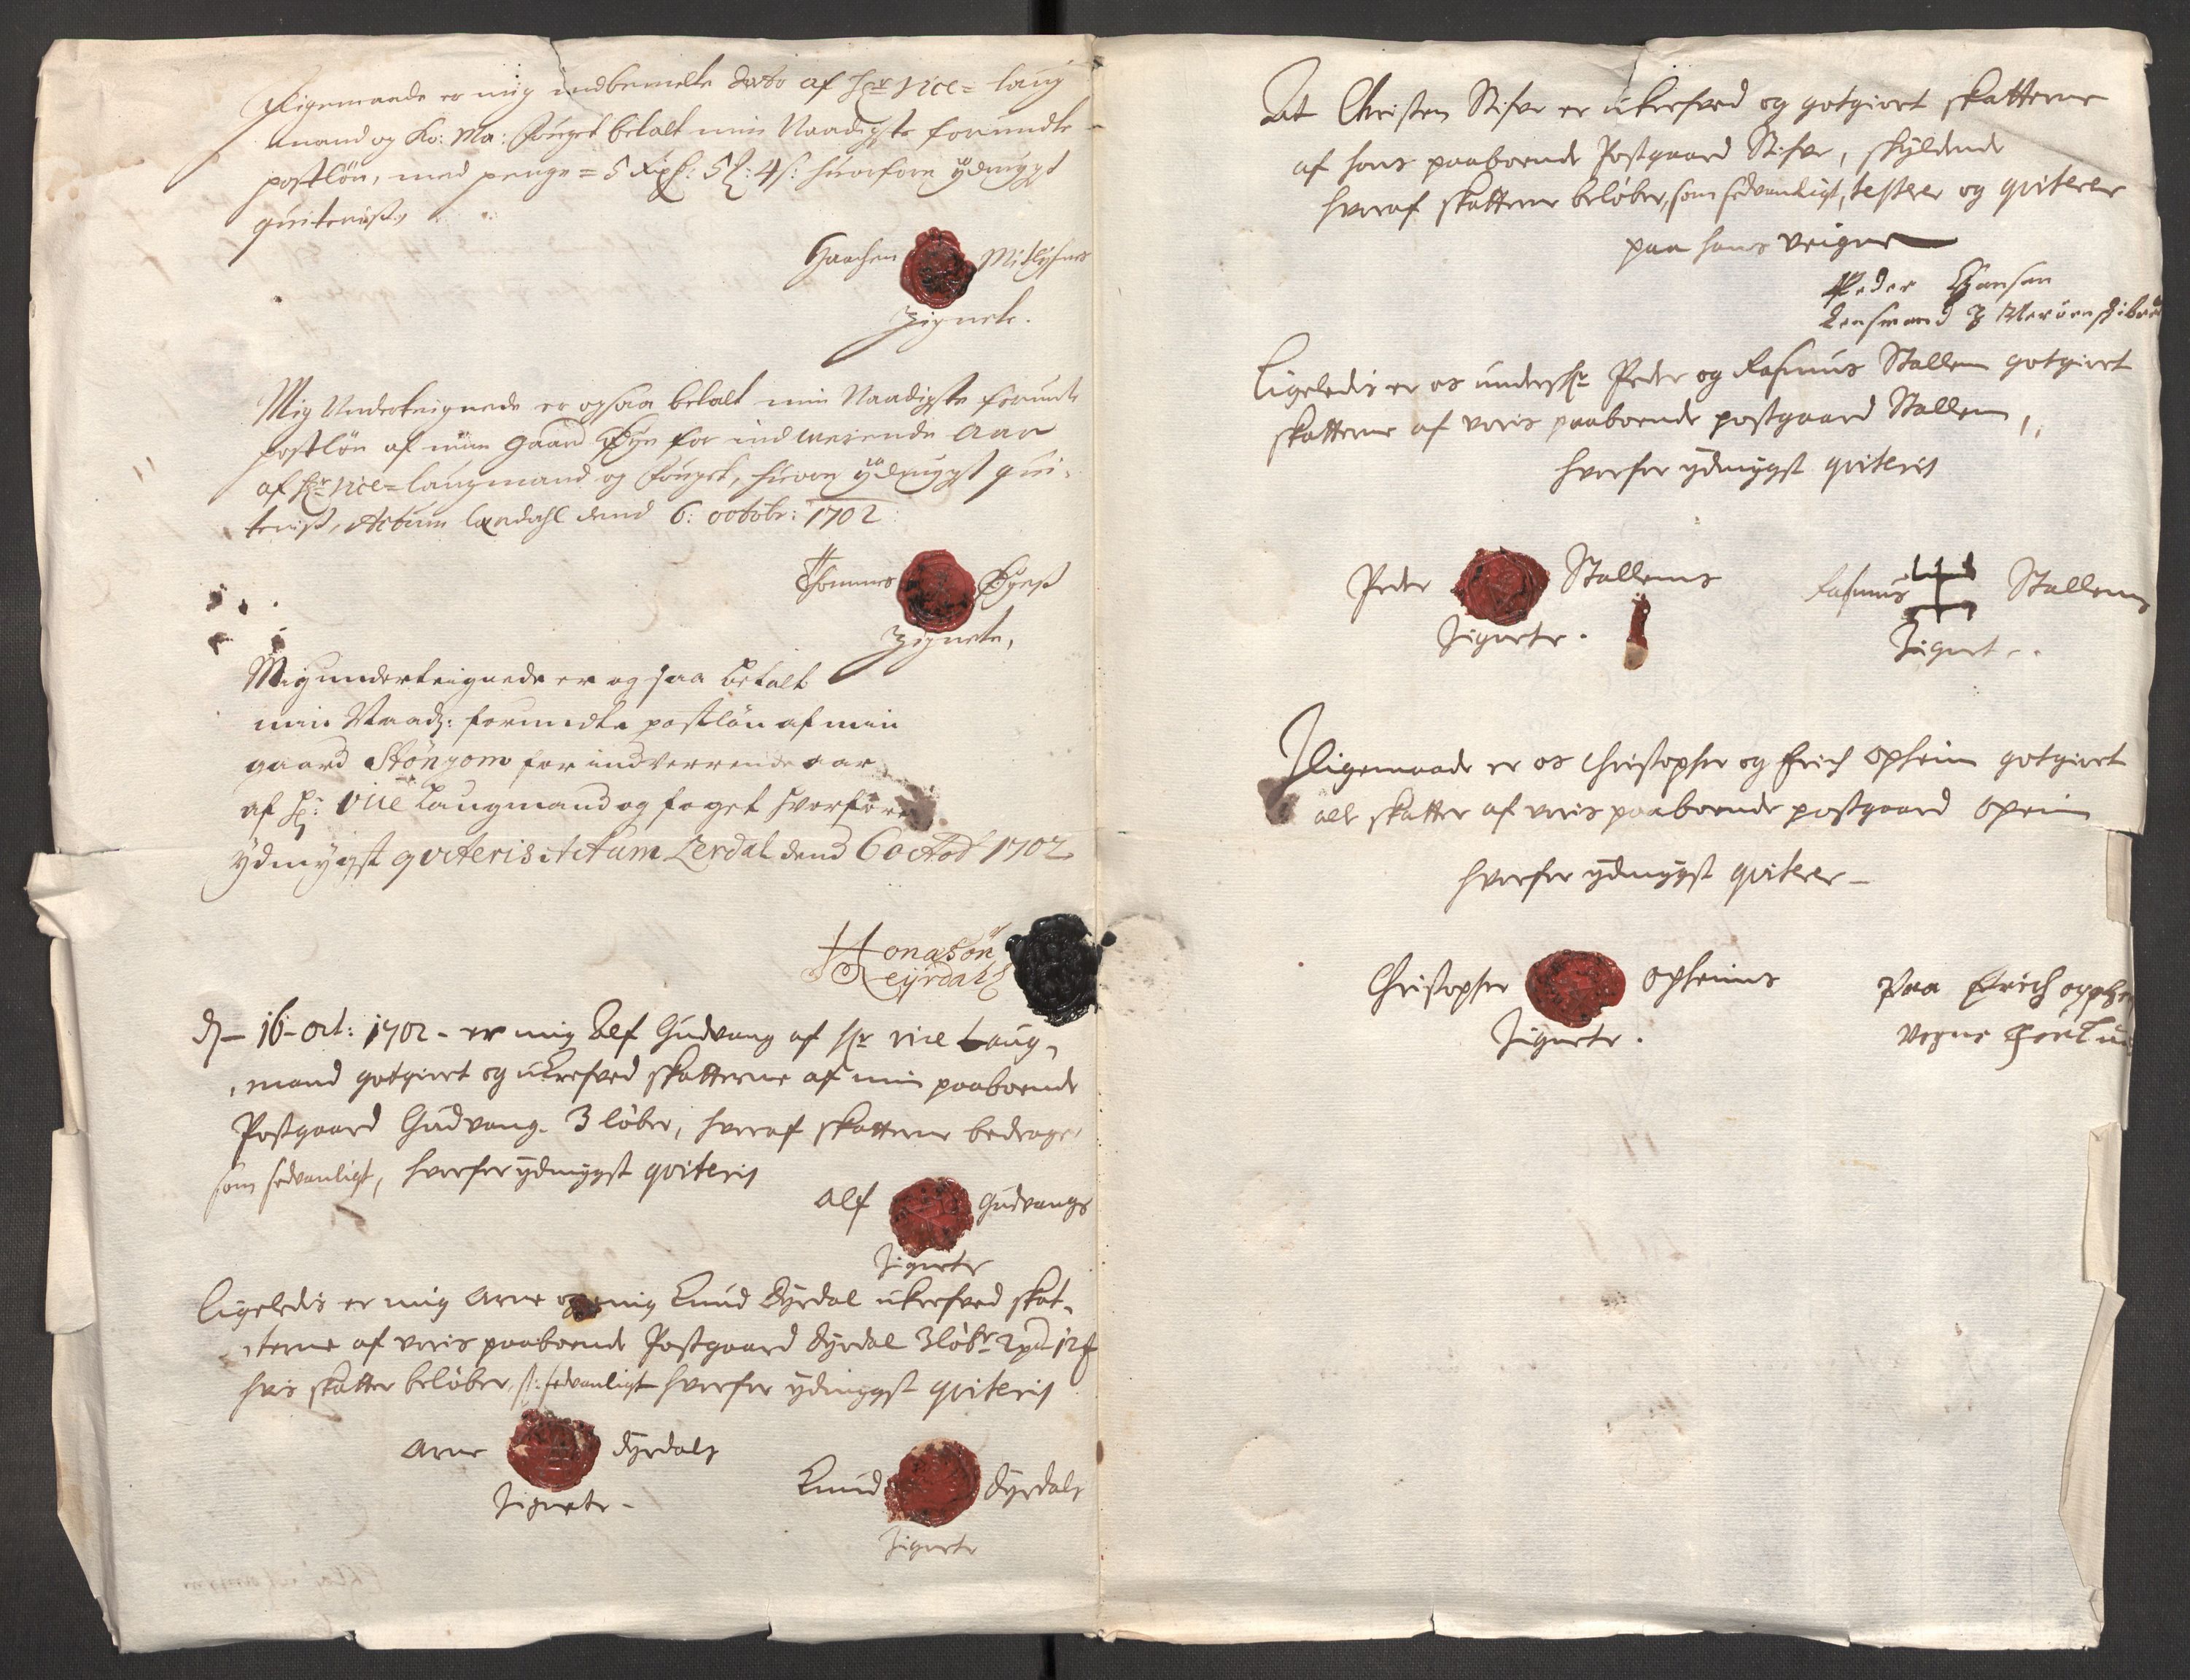 Ligemaade er mig indbemelte dato af Hr Vice= laug
mand og Ko: Ma: Fouget betalt min Naadigste forundte
postløn, med penge = 5 Rixd: 5 : 4 s: huorfore ydmygst
quiterist,
Haachen Mitlysnes
Zignete.
Mig Underteignede er ogsaa betalt min Naadigste forundte
postløn af min gaard Øye for indwærende Aar
af Hr Vice=laugmand og Fouget, huore ydmygst qui=
terist, Actum Lærdahl dend 6: octobr: 1702
Thommes Øyest
Zignete,
Mig underteignede er og saa betalt
min Naad: forundte postløn af min
gaard Stønjom for indverrende aar
af Hr: vice Laugmand og foget hvorfore
ydmygst qviteris Actum Lerdal dend 6 octob 1702
H onasøn
Leyrdahl
D 16 oct: 1702 - er mig Alf Gudvang af Hr vice Laug=
mand gotgiort og ukrefved skatterne af min paaboende
Postgaard Gudvang 3 løber, hvoraf skatterne bedrager
som sedvanligt, hvorfor ydmygst qviteris
Alf Gudvangs
Zignete
Ligeledis er mig Arne og mig Knud Dyrdal ukrefved skat=
terne af voris paaboende Postgaard Dyrdal 3 løbr 2 pd 12
hvis skatter beløber, s: sedvanligt hvorfor ydmygst qviteris
Arne Dyrdals
Zignete -
Knud Dyrdals
Zignete
At Christen Stifve er ukrefved og gotgiort skatterne
af hans paaboende Postgaard Stifve, skyldende
hvoraf skatterne beløber, som sedvanligt, tester og qviterer
paa hans veigne
Peder Hansen
Lensmand
Ligeledis er os underskr Peder og Rasmus Stallem gotgiort
skatterne af voris paaboende postgaard Stallem,
hvorfor ydmygst qviteris
Peder Stallems
Zignete.
Rasmus Stallems
Zignet
Iligemaade er os Christopher og Erich Opheim gotgiort
alle skatter af voris paaboende postgaard Opeim
hvorfor ydmygst qviterer -
Christopher Opheims
Zignete.
Paa Erich
vegne